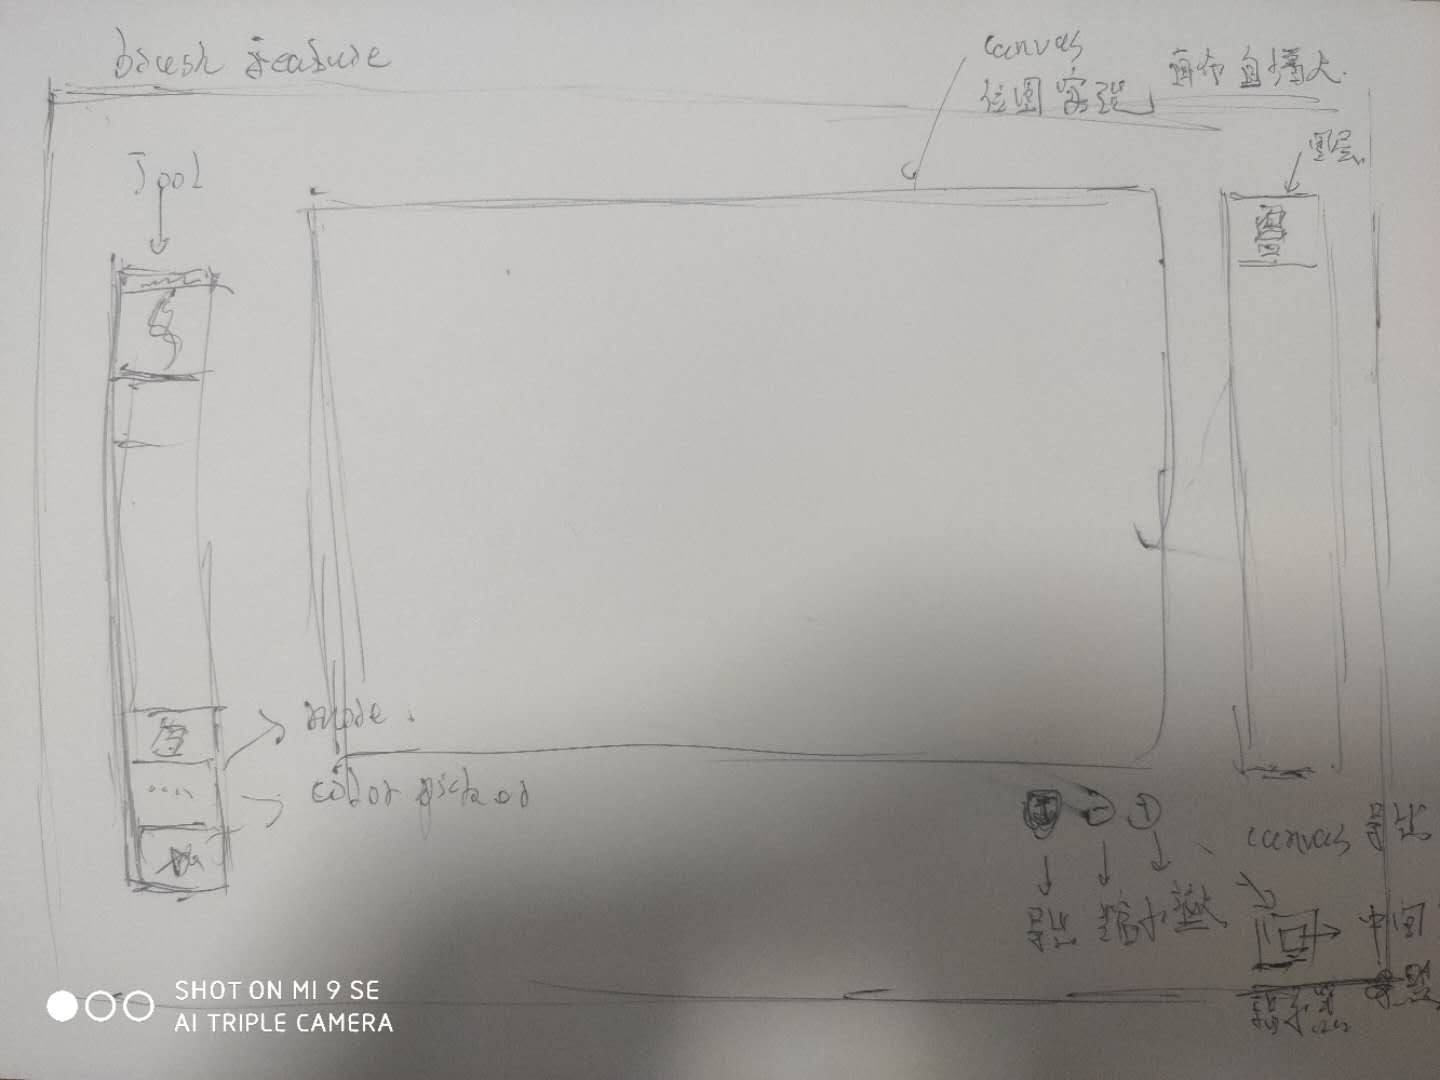 brush feature
canvas
位图实现
画布自增大.
Tool
图层
mode.
color picker
- +
导出 缩小 放大
canvas 导出
中间
指示器
SHOT ON MI 9 SE
AI TRIPLE CAMERA